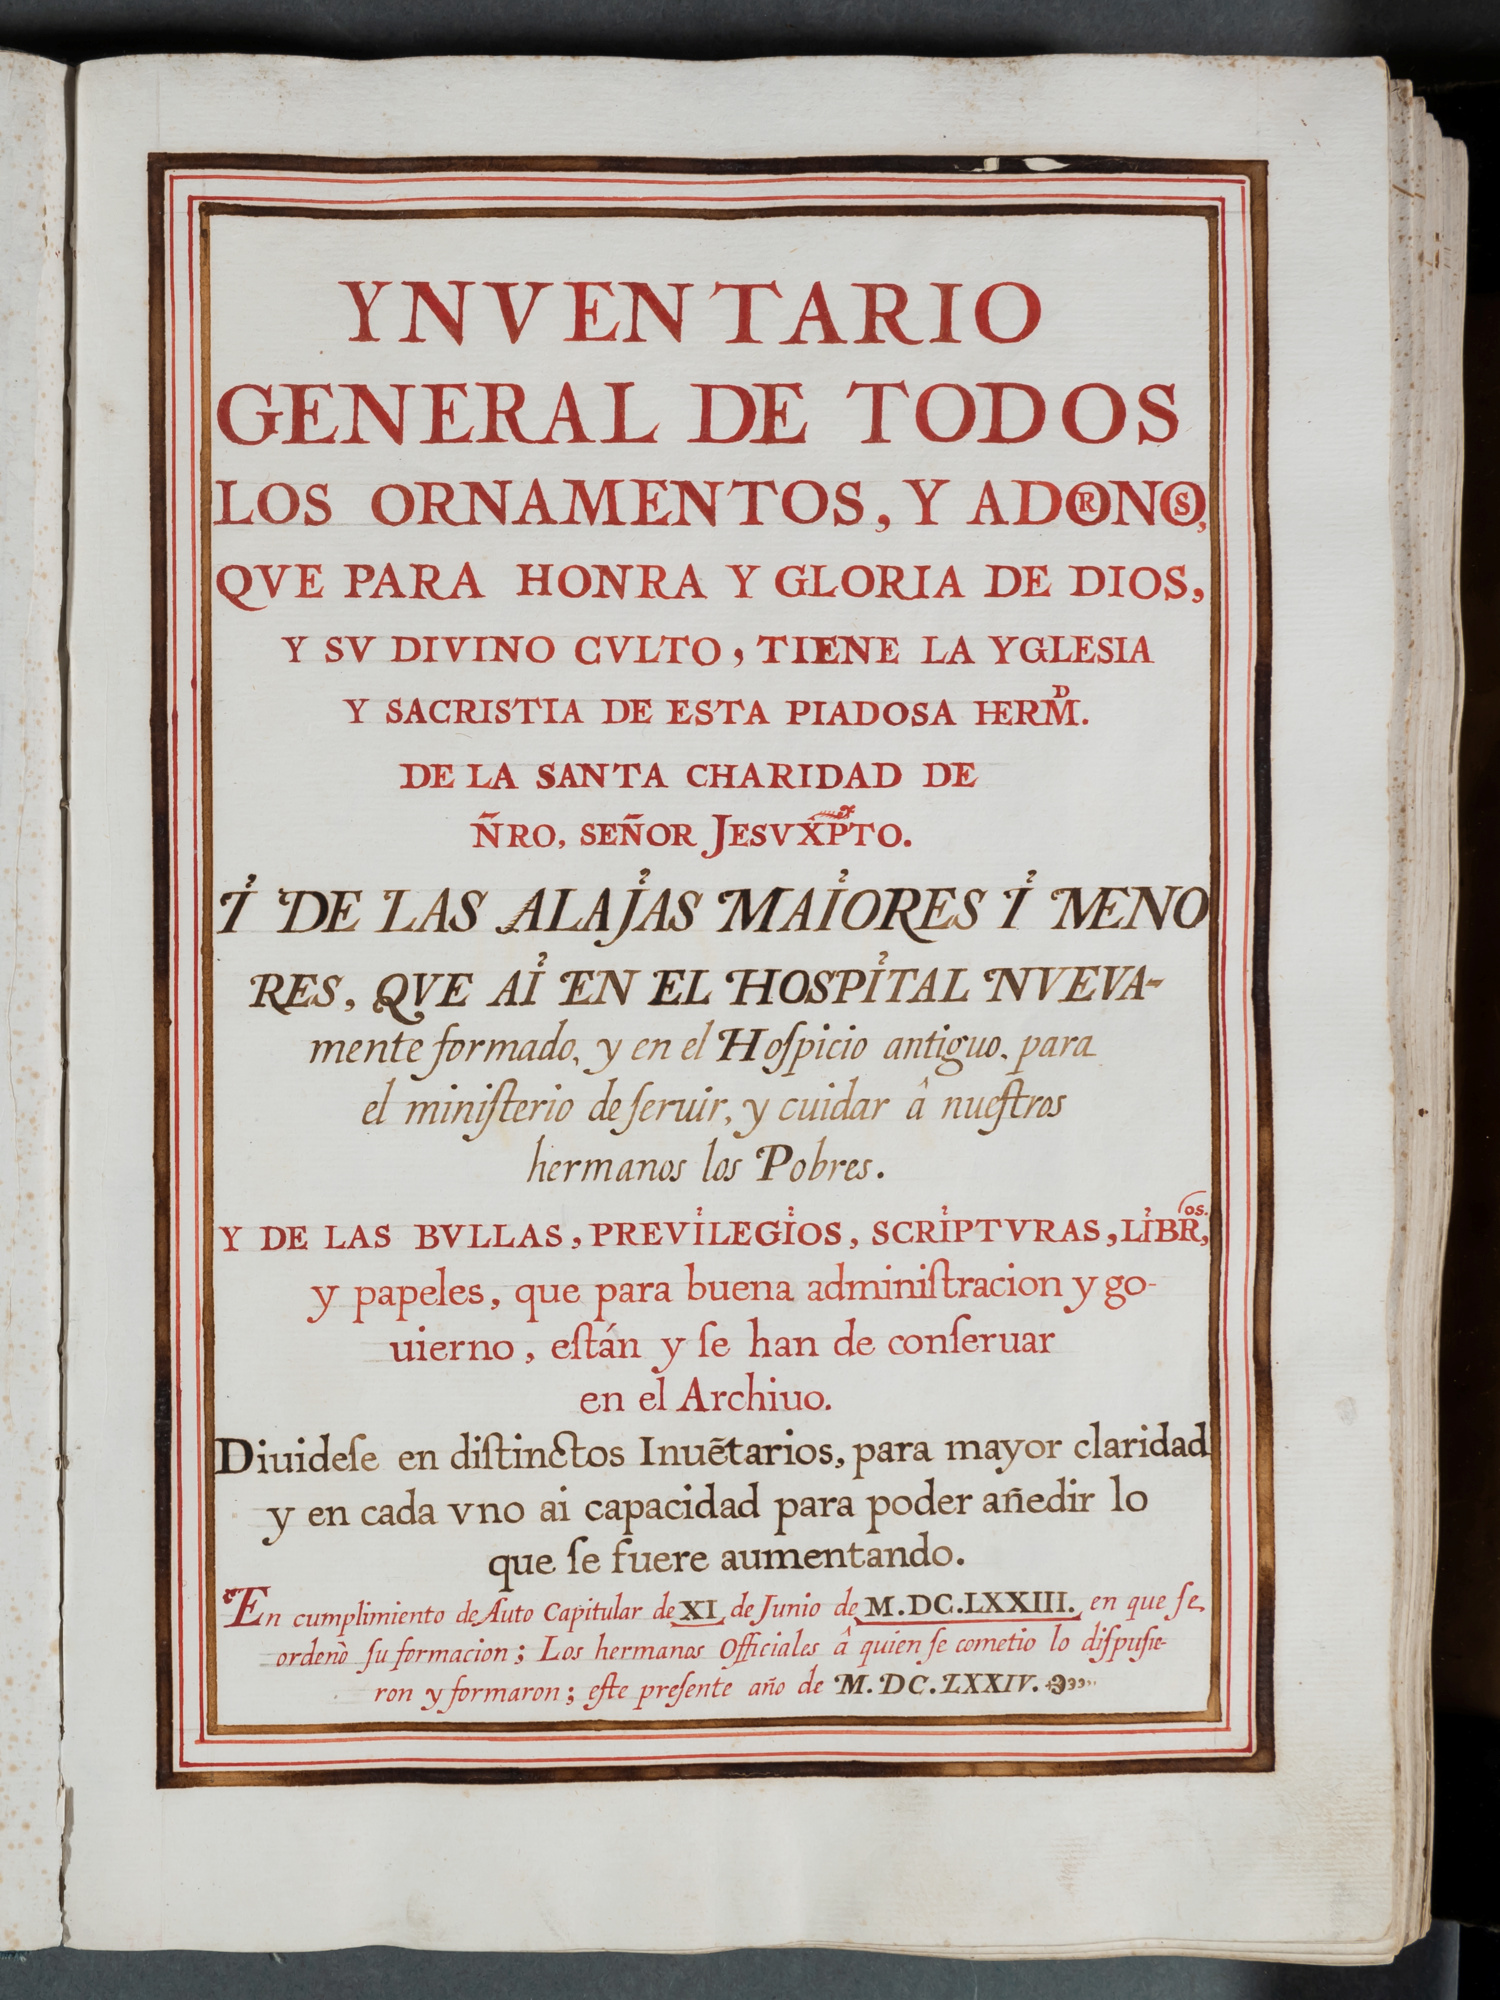 YNVENTARIO
GENERAL DE TODOS
LOS ORNAMENTOS, Y ADORNOS,
QVE PARA HONRA Y GLORIA DE DIOS,
Y SV DIVINO CVLTO, TIENE LA YGLESIA
Y SACRISTIA DE ESTA PIADOSA HERMD.
DE LA SANTA CHARIDAD DE
ÑRO, SEÑOR JESVXPTO.
I DE LAS ALAJAS MAIORES I MENO
RES, QVE AI EN EL HOSPITAL NVEVA-
mente formado, y en el Hoſpicio antiguo, para
el miniſterio de ſeruir, y cuidar â nueſtros
hermanos los Pobres.
Y DE LAS BVLLAS, PREVILEGIOS, SCRIPTVRAS, LIBROS,
y papeles, que para buena adminiſtracion y go-
uierno, eſtán y ſe han de conſeruar
en el Archiuo.
Diuideſe en diſtinctos Inuẽtarios, para mayor claridad
y en cada vno ai capacidad para poder añedir lo
que ſe fuere aumentando.
En cumplimiento de Auto Capitular de XI de Junio de M.DC.LXXIII. en que ſe
ordenò ſu formacion; Los hermanos Officiales â quien ſe cometio lo diſpuſie-
ron y formaron; eſte preſente año de M.DC.LXXIV.